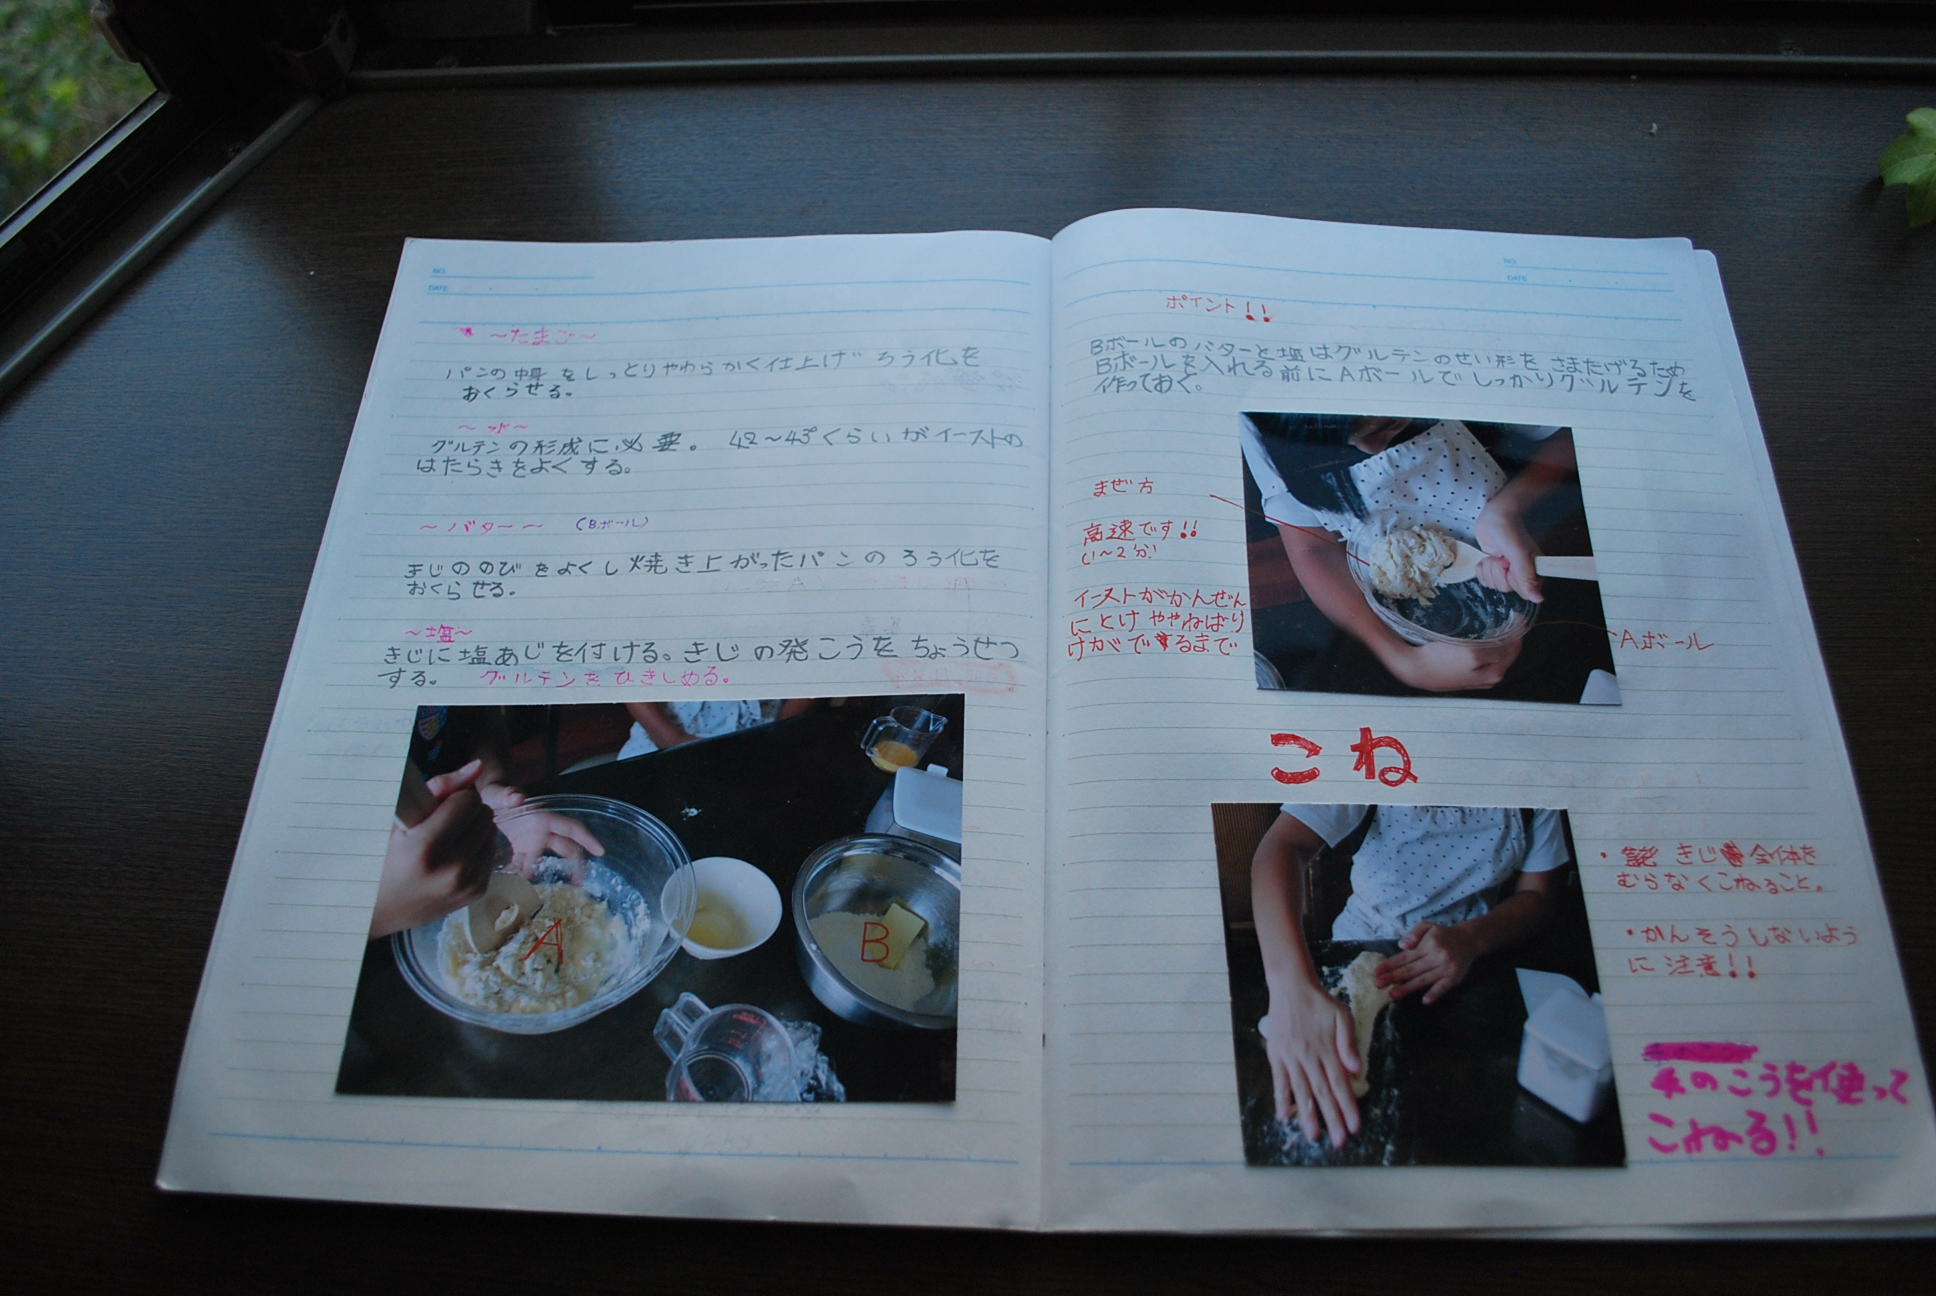 NO.
DATE
～たまご～
パンの中身をしっとりやわらかく仕上げ ろう化を
おくらせる。
～水～
グルテンの形成に必要。 42～43°くらいがイーストの
はたらきをよくする。
～バター～ (Bボール)
きじののびをよくし焼き上がったパンのろう化を
おくらせる。
～塩～
きじに塩あじを付ける。きじの発こうをちょうせつ
する。 グルテンをひきしめる。
A
B
NO.
DATE
ポイント!!
Bボールのバターと塩はグルテンのせい形をさまたげるため
Bボールを入れる前にAボールでしっかりグルテンを
作っておく。
まぜ方
高速です!!
(1～2分)
イーストがかんぜん
にとけややねばり
けがでるまで
Aボール
こね
・きじ全体を
むらなくこねること。
・かんそうしないよう
に注意!!
のこうを使って
こねる!!